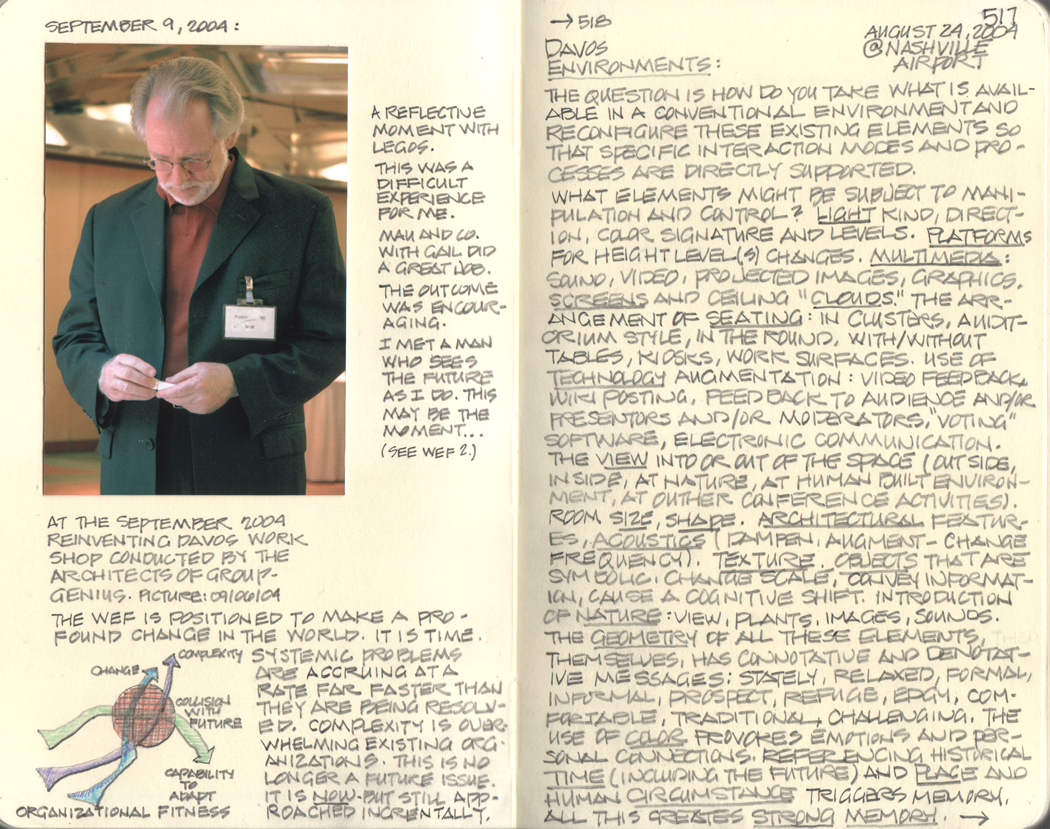 SEPTEMBER 9, 2004:
A REFLECTIVE
MOMENT WITH
LEGOS.
THIS WAS A
DIFFICULT
EXPERIENCE
FOR ME.
MAU AND CO.
WITH GAIL DID
A GREAT JOB.
THE OUTCOME
WAS ENCOUR-
AGING.
I MET A MAN
WHO SEES
THE FUTURE
AS I DO. THIS
MAY BE THE
MOMENT...
(SEE WEF 2.)
AT THE SEPTEMBER 2004
REINVENTING DAVOS WORK
SHOP CONDUCTED BY THE
ARCHITECTS OF GROUP-
GENIUS. PICTURE: 09/06/04
THE WEF IS POSITIONED TO MAKE A PRO-
FOUND CHANGE IN THE WORLD. IT IS TIME.
SYSTEMIC PROBLEMS
ARE ACCRUING AT A
RATE FAR FASTER THAN
THEY ARE BEING RESOLV-
ED. COMPLEXITY IS OVER-
WHELMING EXISTING ORG-
ANIZATIONS. THIS IS NO
LONGER A FUTURE ISSUE.
IT IS NOW-BUT STILL APP-
ROACHED INCRENTALLY.
CHANGE
COMPLEXITY
COLLISION
WITH
FUTURE
CAPABILITY
TO
ADAPT
ORGANIZATIONAL FITNESS
→518
517
AUGUST 24, 2004
@NASHVILLE
AIRPORT
DAVOS
ENVIRONMENTS:
THE QUESTION IS HOW DO YOU TAKE WHAT IS AVAIL-
ABLE IN A CONVENTIONAL ENVIRONMENT AND
RECONFIGURE THESE EXISTING ELEMENTS SO
THAT SPECIFIC INTERACTION MODES AND PRO-
CESSES ARE DIRECTLY SUPPORTED.
WHAT ELEMENTS MIGHT BE SUBJECT TO MANI-
PULATION AND CONTROL? LIGHT KIND, DIRECT-
ION, COLOR SIGNATURE AND LEVELS. PLATFORMS
FOR HEIGHT LEVEL(S) CHANGES. MULTIMEDIA:
SOUND, VIDEO, PROJECTED IMAGES, GRAPHICS.
SCREENS AND CEILING "CLOUDS." THE ARR-
ANGEMENT OF SEATING: IN CLUSTERS, AUDIT-
ORIUM STYLE, IN THE ROUND, WITH/WITHOUT
TABLES, KIOSKS, WORK SURFACES. USE OF
TECHNOLOGY AUGMENTATION: VIDEO FEEDBACK,
WIKI POSTING, FEEDBACK TO AUDIENCE AND/OR
PRESENTORS AND/OR MODERATORS, "VOTING"
SOFTWARE, ELECTRONIC COMMUNICATION.
THE VIEW INTO OR OUT OF THE SPACE (OUTSIDE,
INSIDE, AT NATURE, AT HUMAN BUILT ENVIRON-
MENT, AT OUTHER CONFERENCE ACTIVITIES).
ROOM SIZE, SHAPE. ARCHITECTURAL FEATUR-
ES, ACOUSTICS (DAMPEN, AUGMENT- CHANGE
FREQUENCY). TEXTURE. OBJECTS THAT ARE
SYMBOLIC. CHANGE SCALE, CONVEY INFORMAT-
ION, CAUSE A COGNITIVE SHIFT. INTRODUCTION
OF NATURE: VIEW, PLANTS, IMAGES, SOUNDS.
THE GEOMETRY OF ALL THESE ELEMENTS,
THEMSELVES, HAS CONNOTATIVE AND DENOTAT-
IVE MESSAGES: STATELY, RELAXED, FORMAL,
INFORMAL, PROSPECT, REFUGE, EDGY, COM-
FORTABLE, TRADITIONAL, CHALLENGING. THE
USE OF COLOR PROVOKES EMOTIONS AND PER-
SONAL CONNECTIONS. REFERENCING HISTORICAL
TIME (INCLUDING THE FUTURE) AND PLACE AND
HUMAN CIRCUMSTANCE TRIGGERS MEMORY.
ALL THIS CREATES STRONG MEMORY. →